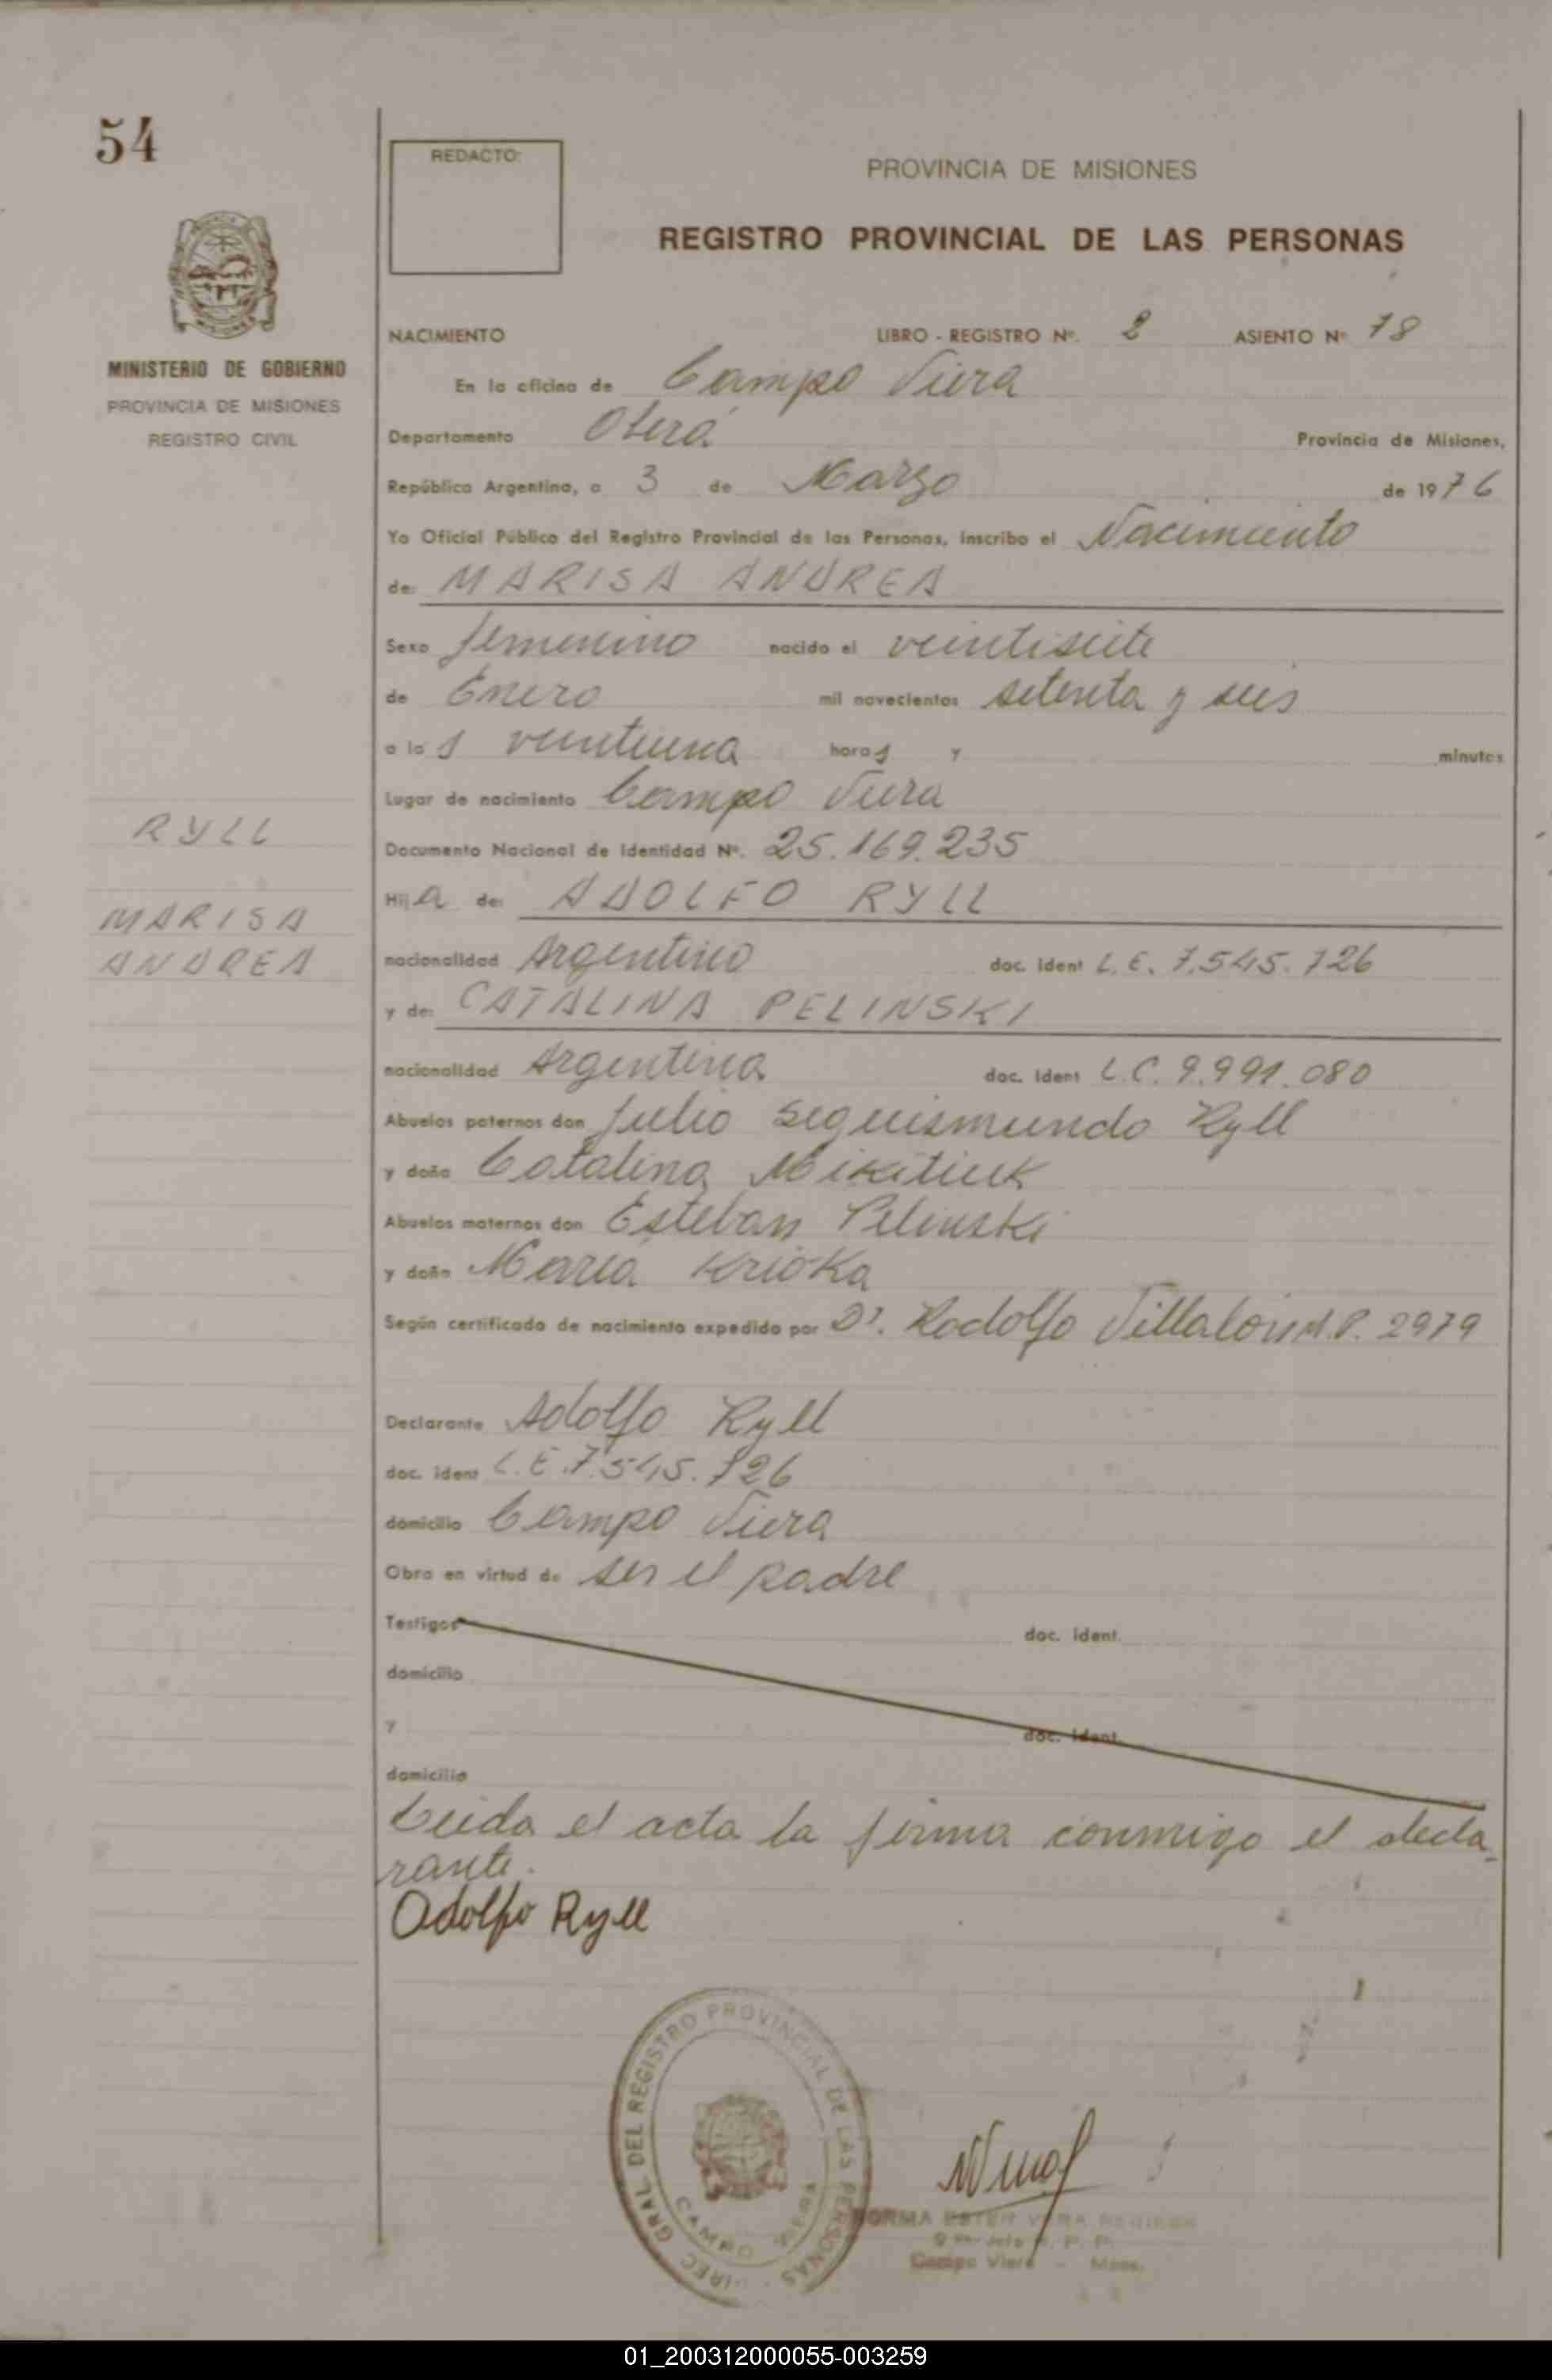 54
REDACTO:
PROVINCIA DE MISIONES
REGISTRO PROVINCIAL DE LAS PERSONAS
MINISTERIO DE GOBIERNO
PROVINCIA DE MISIONES
REGISTRO CIVIL
NACIMIENTO LIBRO - REGISTRO Nº. 2 ASIENTO Nº 78
En la oficina de Campo Viera
Departamento Oberá Provincia de Misiones,
República Argentina, a 3 de Marzo de 1976
Yo Oficial Público del Registro Provincial de las Personas, inscribo el Nacimiento
de: MARISA ANDREA
Sexo femenino nacido el veintisiete
de Enero mil novecientos setenta y seis
a las veintiuna horas y minutos
Lugar de nacimiento Campo Viera
Documento Nacional de Identidad Nº. 25.169.235
Hija de: ADOLFO RYLL
RYLL
MARISA
ANDREA
nacionalidad Argentino doc. ident L.E. 7.545.726
y de: CATALINA PELINSKI
nacionalidad Argentina doc. ident L.C. 9.991.080
Abuelos paternos don Julio Seguismundo Ryll
y doña Catalina Mikitiuk
Abuelos maternos don Esteban Pelinski
y doña María Krioka
Según certificado de nacimiento expedido por Dr. Rodolfo Villalón M.P. 2979
Declarante Adolfo Ryll
doc. ident L.E. 7.545.726
domicilio Campo Viera
Obra en virtud de ser el padre
Testigos doc. ident.
domicilio
y doc. ident.
domicilio
Leida el acta la firma conmigo el decla-
rante.
Adolfo Ryll
DIREC. GRAL. DEL REGISTRO PROVINCIAL DE LAS PERSONAS
CAMPO VIERA
NORMA ESTER VERA
Campo Viera - Mnes.
01_200312000055-003259